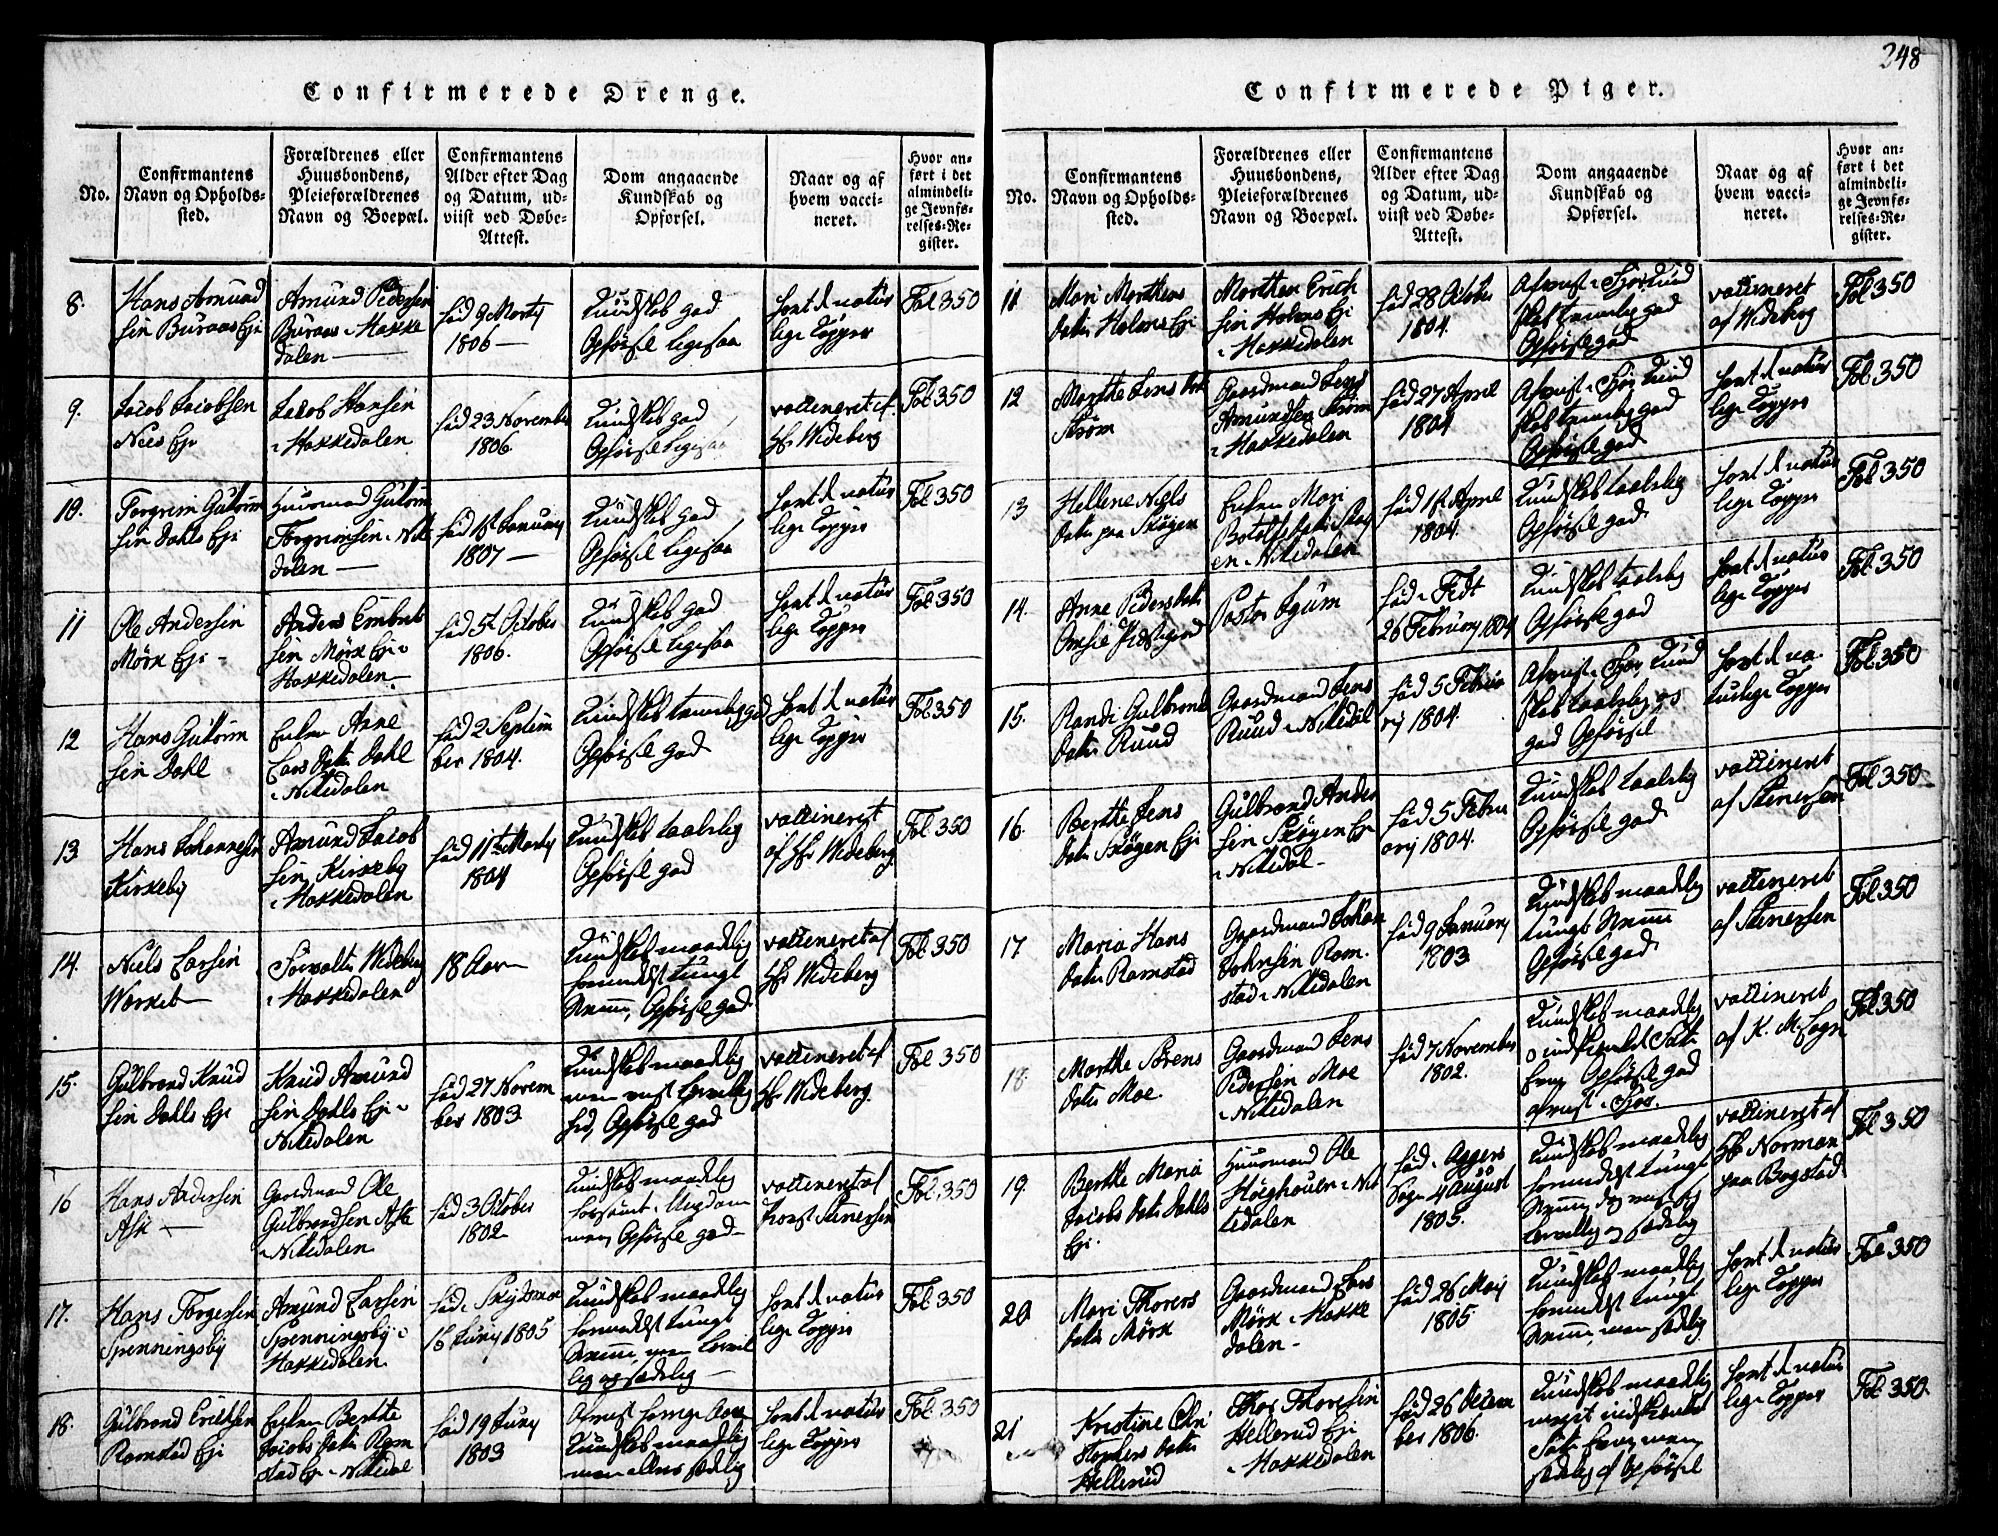 248
Confirmerede Drenge.
No.
Confirmantens
Navn og Opholds-
sted.
Forældrenes eller
Huusbondens,
Pleieforældrenes
Navn og Boepæl.
Confirmantens
Alder efter Dag
og Datum, ud-
viist ved Døbe-
Attest.
Dom angaaende
Kundskab og
Opførsel.
Naar og af
hvem vacci-
neret.
Hvor an-
ført i det
almindeli-
ge Jevnfø-
relses-Re-
gister.
8.
Hans Amund
sen Buraas Eje
Amund Pedersen
Buraas i Hakke
dalen
fød 9 Marty
1806
Kundskab god
Opførsel ligesaa
havt d natur
lige Kopper
Fol 350
9.
Jacob Jacobsen
Nies Eje
Jacob Hansen
i Hakkedalen
fød 23 November
1806.
Kundskab god
Opførsel ligesaa
vaccineret af
Hr Wideberg
Fol 350
10.
Torgrim Guttorm
sen Dahls Eje
Huusmand Guttorm
Torgrimsen i Nit
dalen
fød 1st January
1807
Kundskab god
Opførsel ligesaa
havt d natur
lige Kopper
Fol 350
11
Ole Andersen
Mörk Eje
Anders Embret
sen Mörk Eje i
Hakkedalen
fød 5te October
1806.
Kundskab god
Opførsel ligesaa
havt d natur
lige Kopper
Fol 350
12
Hans Guttorm
sen Dahl
Enken Anne
Lars Datter Dahl
i Nitedalen
fød 2 Septem
ber 1804.
Kundskab temmelig god
Opførsel god
havt d natur
lige Kopper
Fol 350
13
Hans Johannesen
Kirkeby
Amund Jacob
sen Kirkeby
i Hakkedalen
fød 11te Marty
1804
Kundskab taalelig
Opførsel god
vaccineret
af Hr Wideberg
Fol 350
14.
Niels Larsen
Værket
Forvalter Wideberg
i Hakkedalen
18 Aar
Kundskab maadelig
formedelst tungt
Nemme, Opførsel god
vaccineret af
Hr Wideberg
Fol 350
15.
Gulbrand Knud
sen Dahls Eje
Knud Amund
sen Dahls Eje i
Nitedalen
fød 27 Novem
ber 1803
Kundskab maadelig
Opførsel god
vaccineret af
Hr Wideberg
Fol 350
16
Hans Andersen
Ask
Gaardmand Ole
Gulbrandsen Aske
i Nitedalen
fød 3 October
1802
Kundskab maadelig
forsømt i Ungdom
men, Opførsel god
vaccineret af
Provst Stenersen
Fol 350
17.
Hans Torgersen
Spenningsby
Amund Larsen
Spenningsby i
Hakkedalen
fød i Skydsmoe
16 Juny 1805
Kundskab maadelig
formedelst tungt
Nemme, men lærvil
lig og sædelig
havt d natur
lige Kopper
Fol 350
18.
Gulbrand Ericksen
Ramstad Eje
Enken Berthe
Jacobs Datter Ram
stad Eje i Nitedal
fød 19 Juny
1803
Afviist forrige Aar
Kundskab maadelig
men ellers sædelig
havt d natur
lige Kopper
Fol 350
Confirmerede Piger.
No.
Confirmantens
Navn og Opholds-
sted.
Forældrenes eller
Huusbondens,
Pleieforældrenes
Navn og Boepæl.
Confirmantens
Alder efter Dag
og Datum, ud-
viist ved Døbe-
Attest.
Dom angaaende
Kundskab og
Opførsel.
Naar og af
hvem vacci-
neret.
Hvor an-
ført i det
almindeli-
ge Jevnfø-
relses-Re-
gister.
11
Mari Morthens
datter Holens Eje
Morthen Erich
sen Holens Eje
i Hakkedalen
fød 28 October
1804.
Afviist i Fjor Kund
skab temmelig god
Opførsel god
vaccineret
af Wideberg
Fol 350
12
Marthe Jens dat
Strøm
Gaardmand Jens
Amundsen Strøm
i Hakkedalen
fød 27 April
1804
Afviist i Fjor Kund
skab temmelig god
Opførsel god
havt d natur
lige Kopper
Fol 350
13
Hellene Niels
datter paa Skøgen
Enken Mari
Botolfsdatter Skøg
en i Nitedalen
fød 12 April
1804.
Kundskab taalelig
Opførsel god
havt d natur
lige Kopper
Fol 350
14.
Anne Peders datter
Pastor Lyum
fød i Fedt
26 February 1804
Kundskab taalelig
Opførsel god
havt d natur
lige Kopper
Fol 350
15.
Randi Gulbrands
datter Ruud
Gaardmand Jens
Ruud i Nitedal
fød 5 Febru
ary 1804.
Afviist i Fjor, Kund
skab taalelig og
god Opførsel
havt d na
turlige Kopper
Fol 350
16.
Berthe Jens
datter Skøgen Eje
Gulbrand Ander
sen Skøgen Eje
i Nitedal
fød 5 Febru
ary 1804.
Kundskab taalelig
Opførsel god
vaccineret
af Stenersen
Fol 350
17
Maria Hans
datter Ramstad
Gaardmand Johan
Johnsen Ram
stad i Nitedalen
fød 9 January
1803
Kundskab maadelig
tungt Nemme
Opførsel god
vaccineret
af Stenersen
Fol 350
18.
Marthe Sørens
datter Moe
Gaardmand Jens
Pedersen Moe
i Nitedalen
fød 7 November
1802.
Kundskab maadelig
Opførsel god
afviist i Fjor.
vaccineret
af K. M. Sogn
Fol 350
19.
Berthe Maria
Jacobs datter Dahls
Eje.
Huusmand Ole
Høeghouer i Nit
tedalen
fød i Aggers
Sogn 4 August
1805.
Kundskab maadelig
formedelst tungt
Nemme
lærvillig og sædelig
vaccineret af
Hr Norman
paa Bogstad
Fol 350
20
Mari Thorers
datter Mörk
Gaardmand Lars
Mörk i Hakke
dalen
fød 26 May
1805
Kundskab maadelig
formedelst tungt
Nemme, men sædelig
havt d natur
lige Kopper
Fol 350
21
Kristine Chri
stophers datter
Hellerud
Thor Thoresen
Hellerud Eje
i Hakkedalen
fød 26 Decem
ber 1806.
Kundskab maadelig
meget indskrænket
Fatte Evne, men
sædelig af Opførsel
havt d natur
lige Kopper
Fol 350.